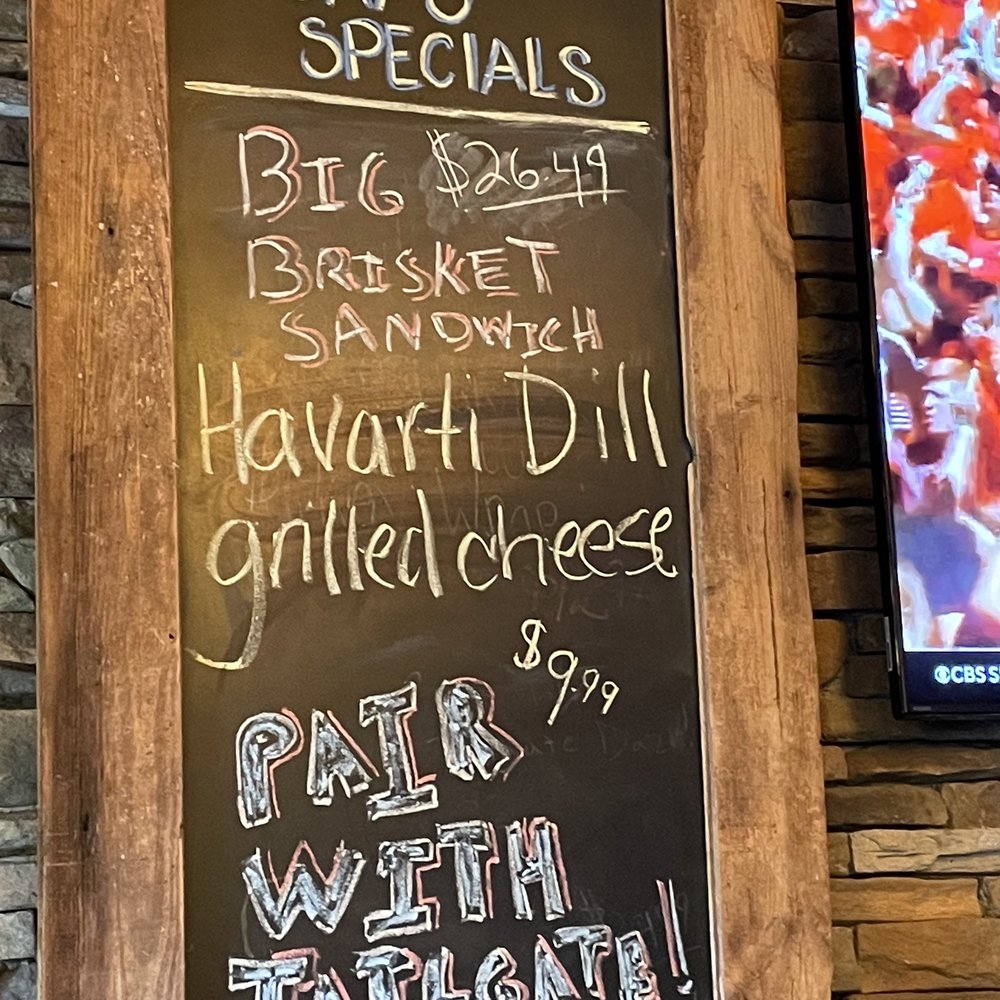 SPECIALS
BIG $26.49
BRISKET
SANDWICH
Havarti Dill
grilled cheese
$9.99
PAIR
WITH
TAILGATE!
CBS S